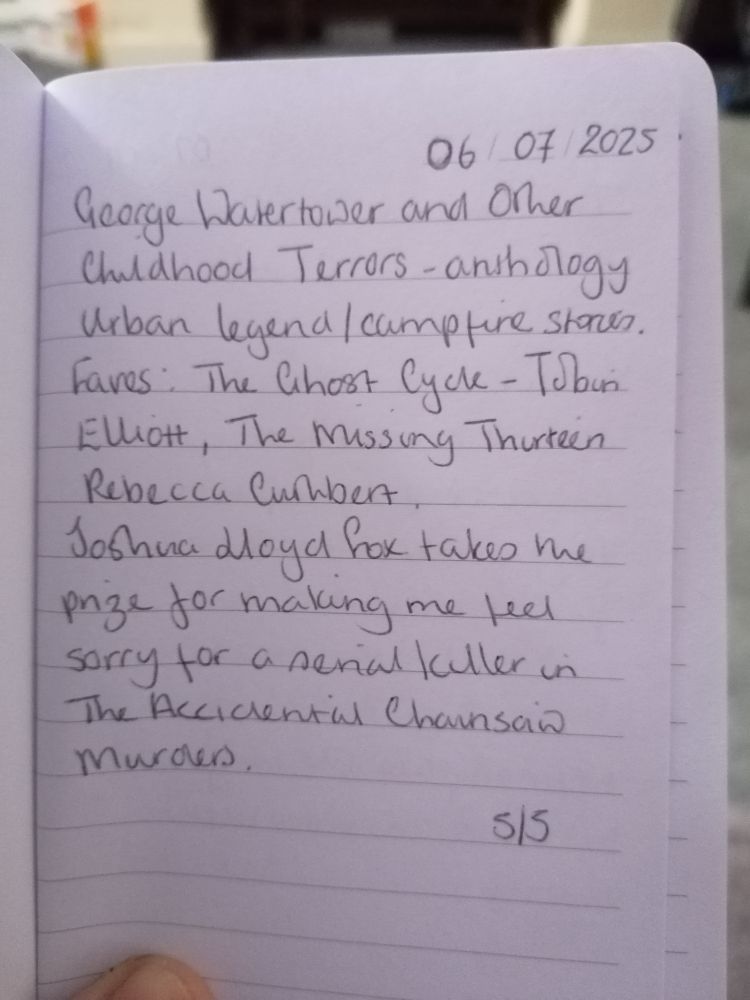 06/07/2025
George Watertower and Other
Childhood Terrors - anthology
Urban legend/campfire stories.
Faves: The Ghost Cycle - Tobin
Elliott, The Missing Thirteen
Rebecca Cuthbert.
Joshua Lloyd Fox takes the
prize for making me feel
sorry for a serial killer in
The Accidental Chainsaw
Murders.
5/5